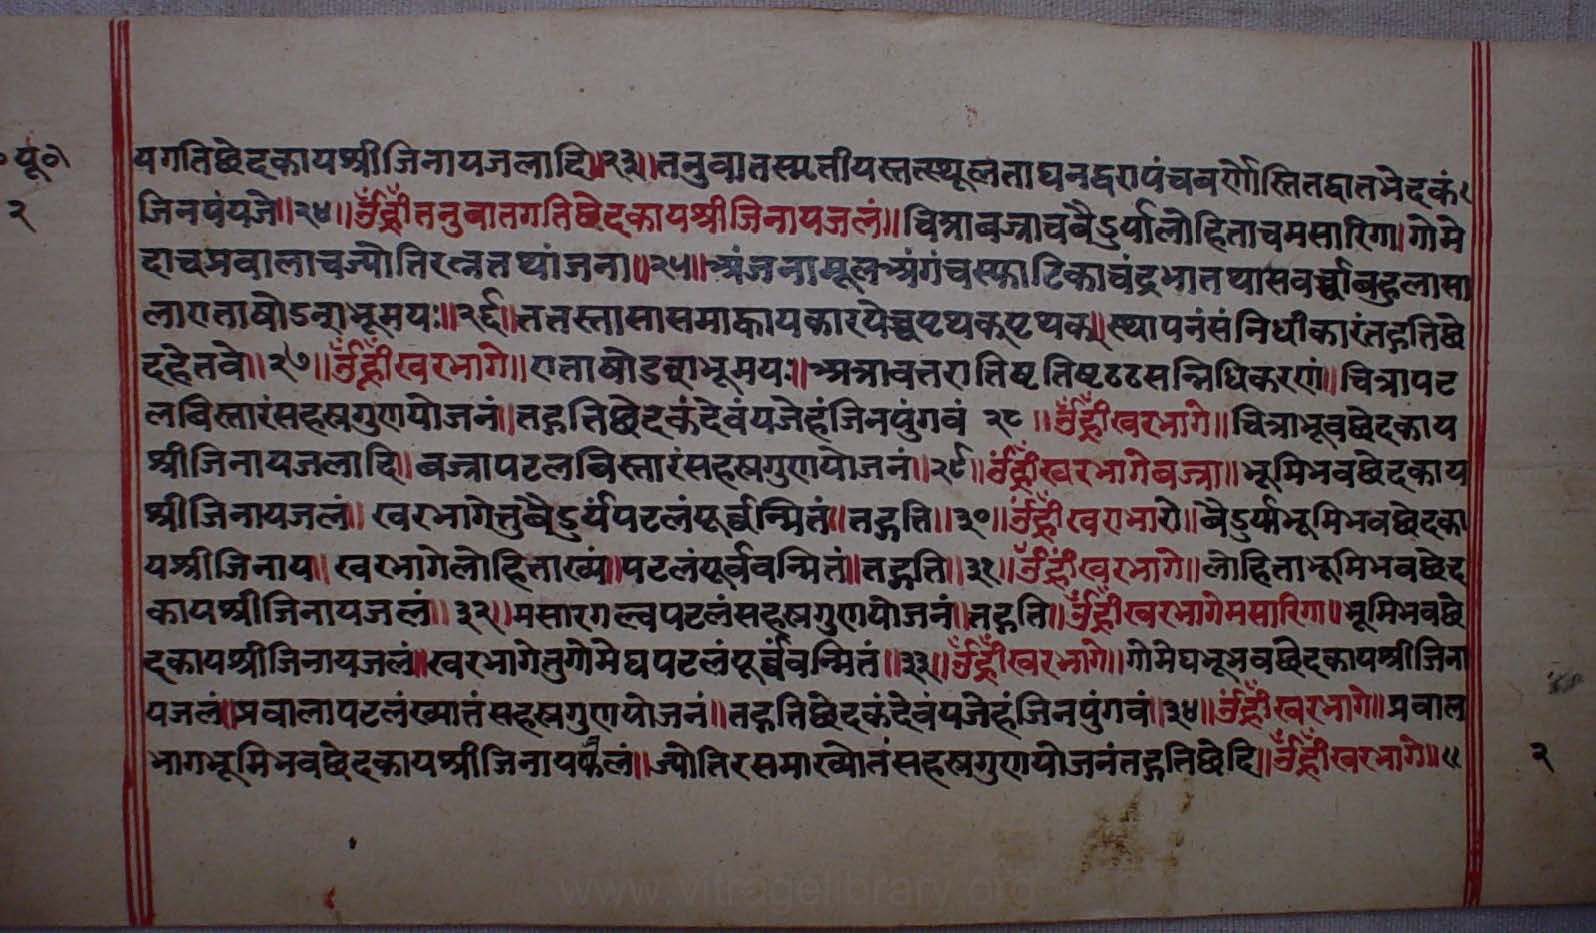 ॰पू॰१
२
यगतिछेदकायश्रीजिनायजलादि॥२३॥तनुवातस्मृतीयस्तत्स्थूलताघनद्वरापंचवर्णोस्तितद्वातभेदकं
जिनपंयजे॥२४॥ॐह्रीँतनुवातगतिछेदकायश्रीजिनायजलं॥चित्राबज्राचबैडुर्यालोहिताचमसारिगा॥गोमे
दाचप्रवालाचज्योतिरत्नतथांजना॥२५॥अंजनामूलअंगंचस्फाटिकाचंद्रभातथासवर्च्चाबुद्दलासा
लाएताषोडन्राभूमयः॥२६॥ततस्तासासमाह्वायकारयेच्चपृथक्पृथक्॥स्थापनंसंनिधीकारंतद्गतिछे
दहेतवे॥२७॥ॐह्रीँखरभागे॥एताषोडन्राभूमयः॥अत्रावतरातिष्टतिष्टठठसन्निधिकरणं॥चित्रापट
लविस्तारंसहस्रगुणयोजनं॥तद्गतिछेदकंदेवंयजेहंजिनपुंगवं २८॥ॐह्रीँखरभागे॥चित्राभूवछेदकाय
श्रीजिनायजलादि॥बज्रापटलबिस्तारंसहस्रगुणयोजनं॥२९॥ॐह्रीँखरभागेबज्रा॥भूमिभवछेदकाय
श्रीजिनायजलं॥खरभागेतुबैडुर्यंपटलंपूर्ब्बन्मितं॥तद्गति॥३०॥ॐह्रीँखराभारो॥बैडुर्याभूमिभवछेदका
यश्रीजिनाय॥खरभागेलोहिताख्यं॥पटलंपूर्ववन्मितं॥तद्गति॥३१॥ॐह्रीँखरभागे॥लोहिताभूमिभवछेद
कायश्रीजिनायजलं॥३२॥मसारगल्वपटलंसहस्रगुणयोजनं॥तद्गति॥ॐह्रीँखरभागेमसारिगा॥भूमिभवछे
दकायश्रीजिनायजलं॥खरभागेतुगोमेघपटलंपूर्ब्बवन्मितं॥३३॥ॐह्रीँखरभागे॥गोमेघभूभवछेदकायश्रीजिना
यजलं॥प्रवालापटलंख्यातंसहस्रगुणयोजनं॥तद्गतिछेदकंदेवंयजेहंजिनपुंगवं॥३४॥ॐह्रीँखरभागे॥प्रवाल
भागभूमिभवछेदकायश्रीजिनायफलं॥ज्योतिरसमाख्योतंसहस्रगुणयोजनंतद्गतिछेदि॥ॐह्रीँखरभागे॥
२
www.vitragelibrary.org